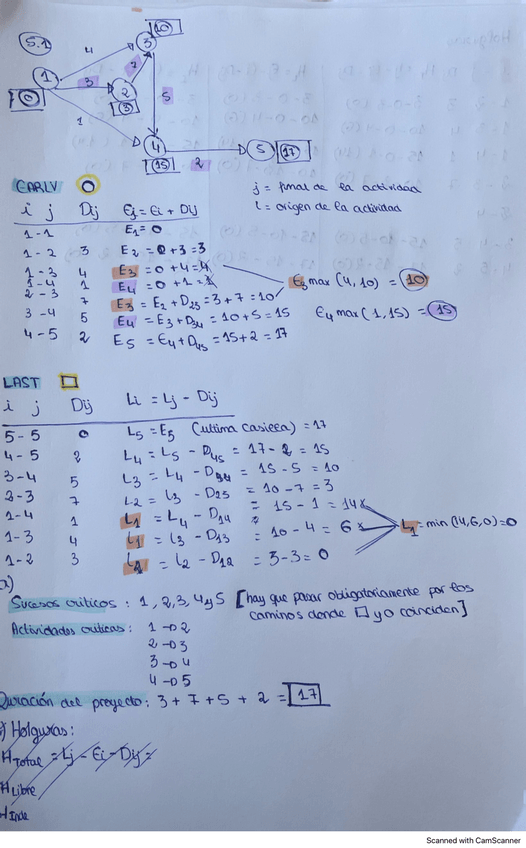 5.1
4
3
10
1
0
3
2
3
7
5
1
4
15
2
5
17
EARLY
j = final de la actividad
i = origen de la actividad
i j Dij Ej = Ei + Dij
1-1 E1 = 0
1-2 3 E2 = 0+3 = 3
1-3 4 E3 = 0+4 = 4
1-4 1 E4 = 0+1 = 1
2-3 7 E3 = E2 + D23 = 3+7 = 10
E3 max (4,10) = 10
3-4 5 E4 = E3 + D34 = 10+5 = 15
E4 max (1,15) = 15
4-5 2 E5 = E4 + D45 = 15+2 = 17
LAST
i j Dij Li = Lj - Dij
5-5 0 L5 = E5 (ultima casilla) = 17
4-5 2 L4 = L5 - D45 = 17-2 = 15
3-4 5 L3 = L4 - D34 = 15-5 = 10
2-3 7 L2 = L3 - D23 = 10-7 = 3
1-4 1 L1 = L4 - D14 = 15-1 = 14
1-3 4 L1 = L3 - D13 = 10-4 = 6
L1 = min (14,6,0) = 0
1-2 3 L2 = L2 - D12 = 3-3 = 0
Sucesos críticos: 1, 2, 3, 4 y 5 [hay que pasar obligatoriamente por los
caminos donde □ y o coinciden]
Actividades críticas: 1 → 2
2 → 3
3 → 4
4 → 5
Duración del proyecto: 3+7+5+2 = 17
Holguras:
H Total = Lj - Ei - Dij =
H Libre
H Inde
Scanned with CamScanner